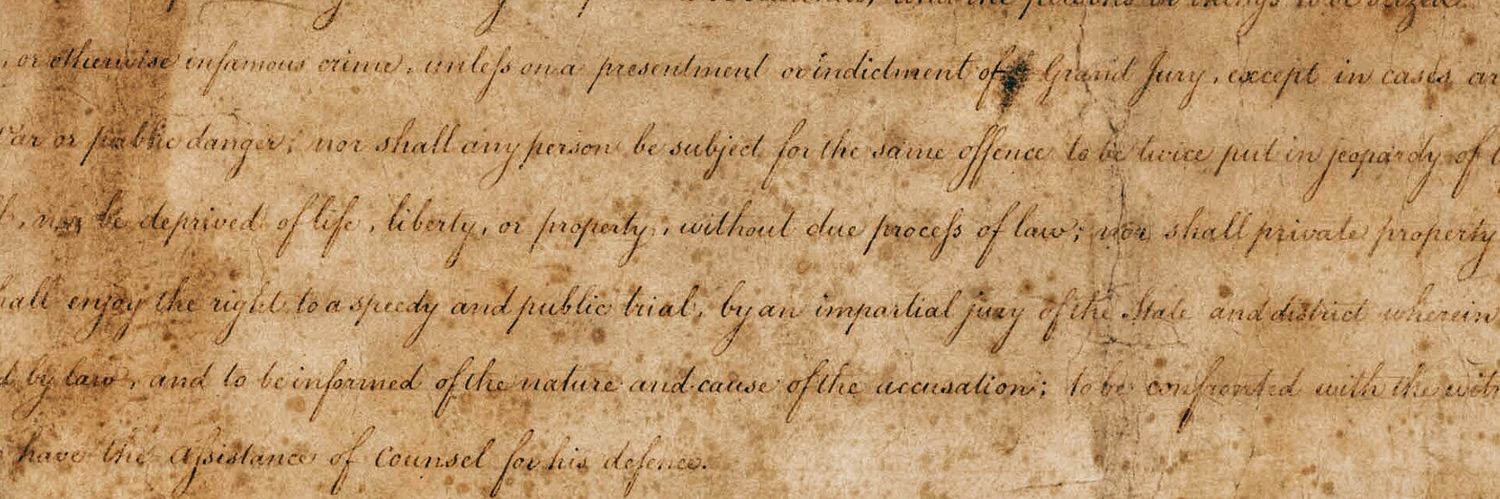 the persons or things to be seized.
, or otherwise infamous crime, unless on a presentment or indictment of a Grand Jury, except in cases ar
War or public danger; nor shall any person be subject for the same offence to be twice put in jeopardy of
, nor be deprived of life, liberty, or property, without due process of law; nor shall private property
hall enjoy the right to a speedy and public trial, by an impartial jury of the State and district wherein
d by law, and to be informed of the nature and cause of the accusation; to be confronted with the wit
have the Assistance of Counsel for his defence.